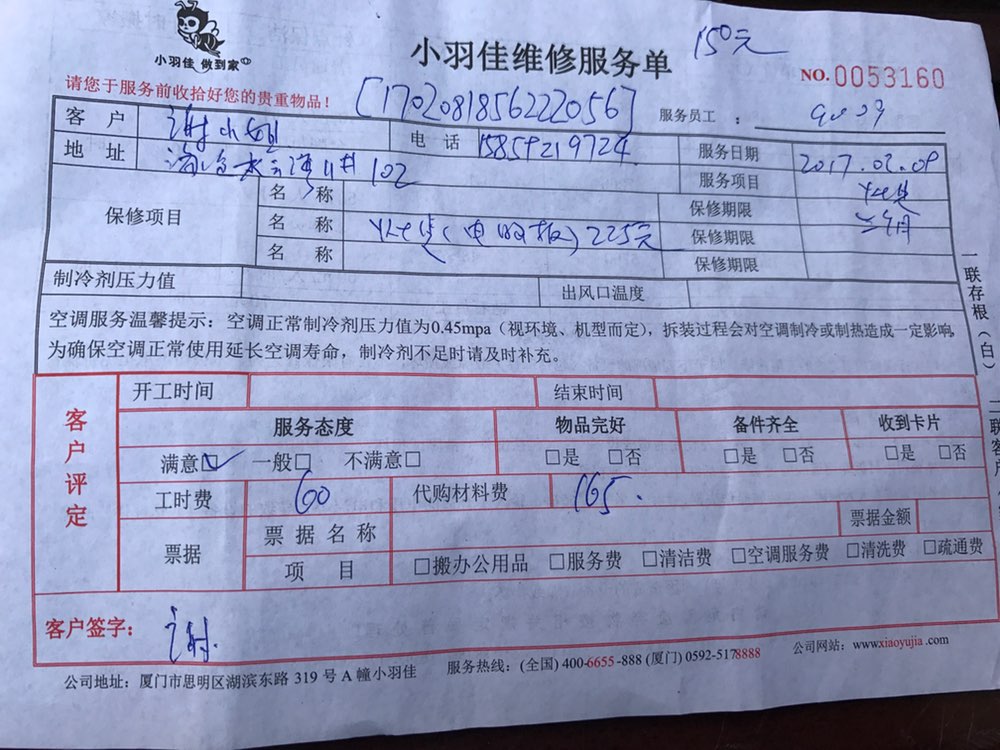 小羽佳 做到家
小羽佳维修服务单
150元
NO.0053160
请您于服务前收拾好您的贵重物品！
[1702081856222056]
服务员工：
客户 谢小姐 电话 15859219724 服务日期 2017.02.09
地址 102 服务项目
保修项目 名称 保修期限 三个月
名称 (电脑板)225元 保修期限
名称 保修期限
制冷剂压力值 出风口温度
空调服务温馨提示：空调正常制冷剂压力值为0.45mpa（视环境、机型而定），拆装过程会对空调制冷或制热造成一定影响，
为确保空调正常使用延长空调寿命，制冷剂不足时请及时补充。
一联存根（白）
二联客
客户评定
开工时间 结束时间
服务态度 物品完好 备件齐全 收到卡片
满意☑ 一般□ 不满意□ □是 □否 □是 □否 □是 □否
工时费 60 代购材料费 165.
票据 票据名称 票据金额
项目 □搬办公用品 □服务费 □清洁费 □空调服务费 □清洗费 □疏通费
客户签字： 谢
公司地址：厦门市思明区湖滨东路 319 号 A 幢小羽佳 服务热线：(全国) 400-6655-888 (厦门) 0592-5178888 公司网站：www.xiaoyujia.com